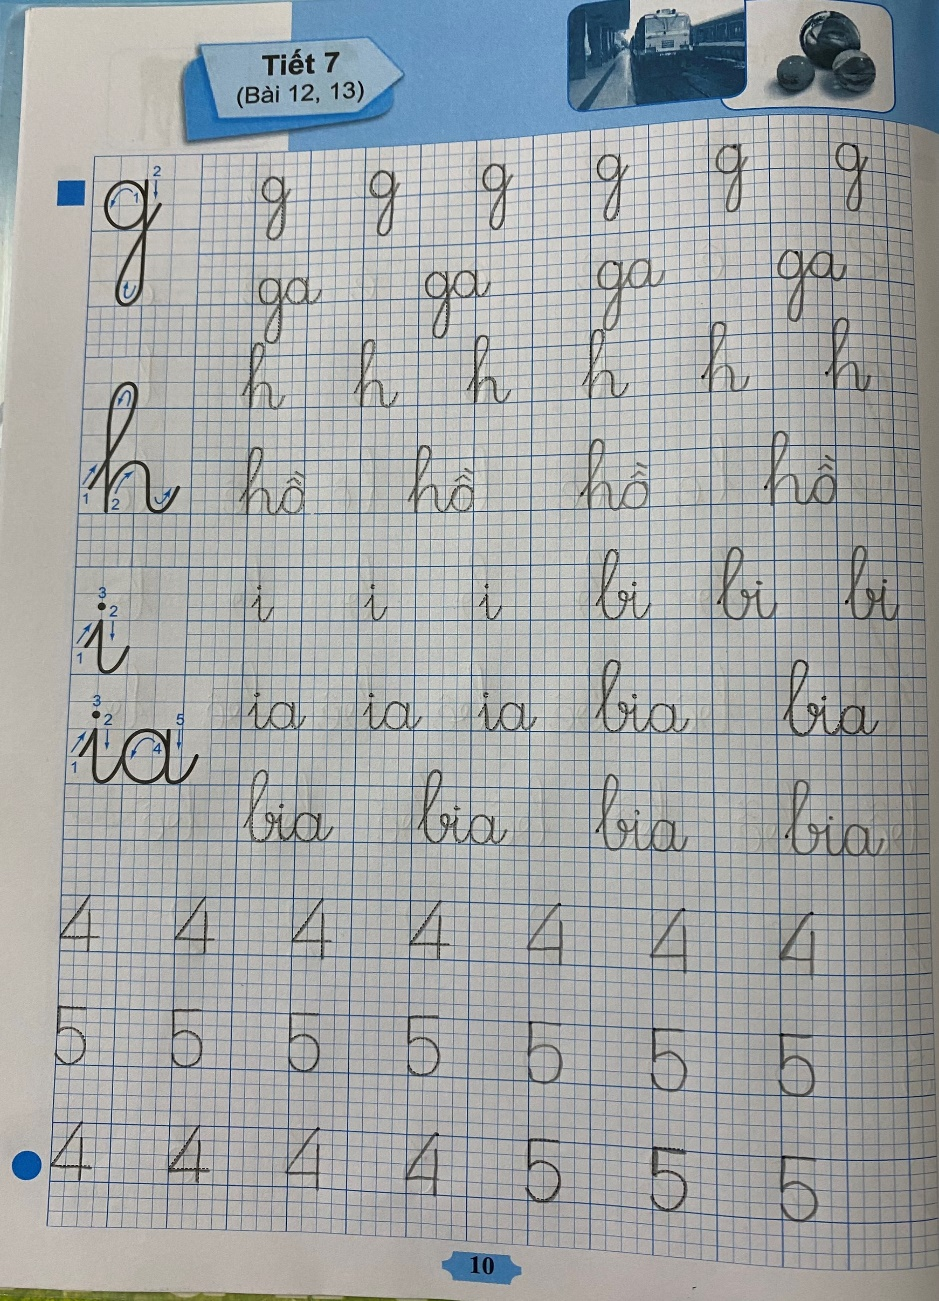 Tiết 7
(Bài 12, 13)
g g g g g g g
ga ga ga ga
h h h h h h h
hồ hồ hồ hồ
i i i i bi bi bi
ia ia ia ia bia bia
bia bia bia bia
4 4 4 4 4 4 4
5 5 5 5 5 5 5
4 4 4 4 5 5 5
10